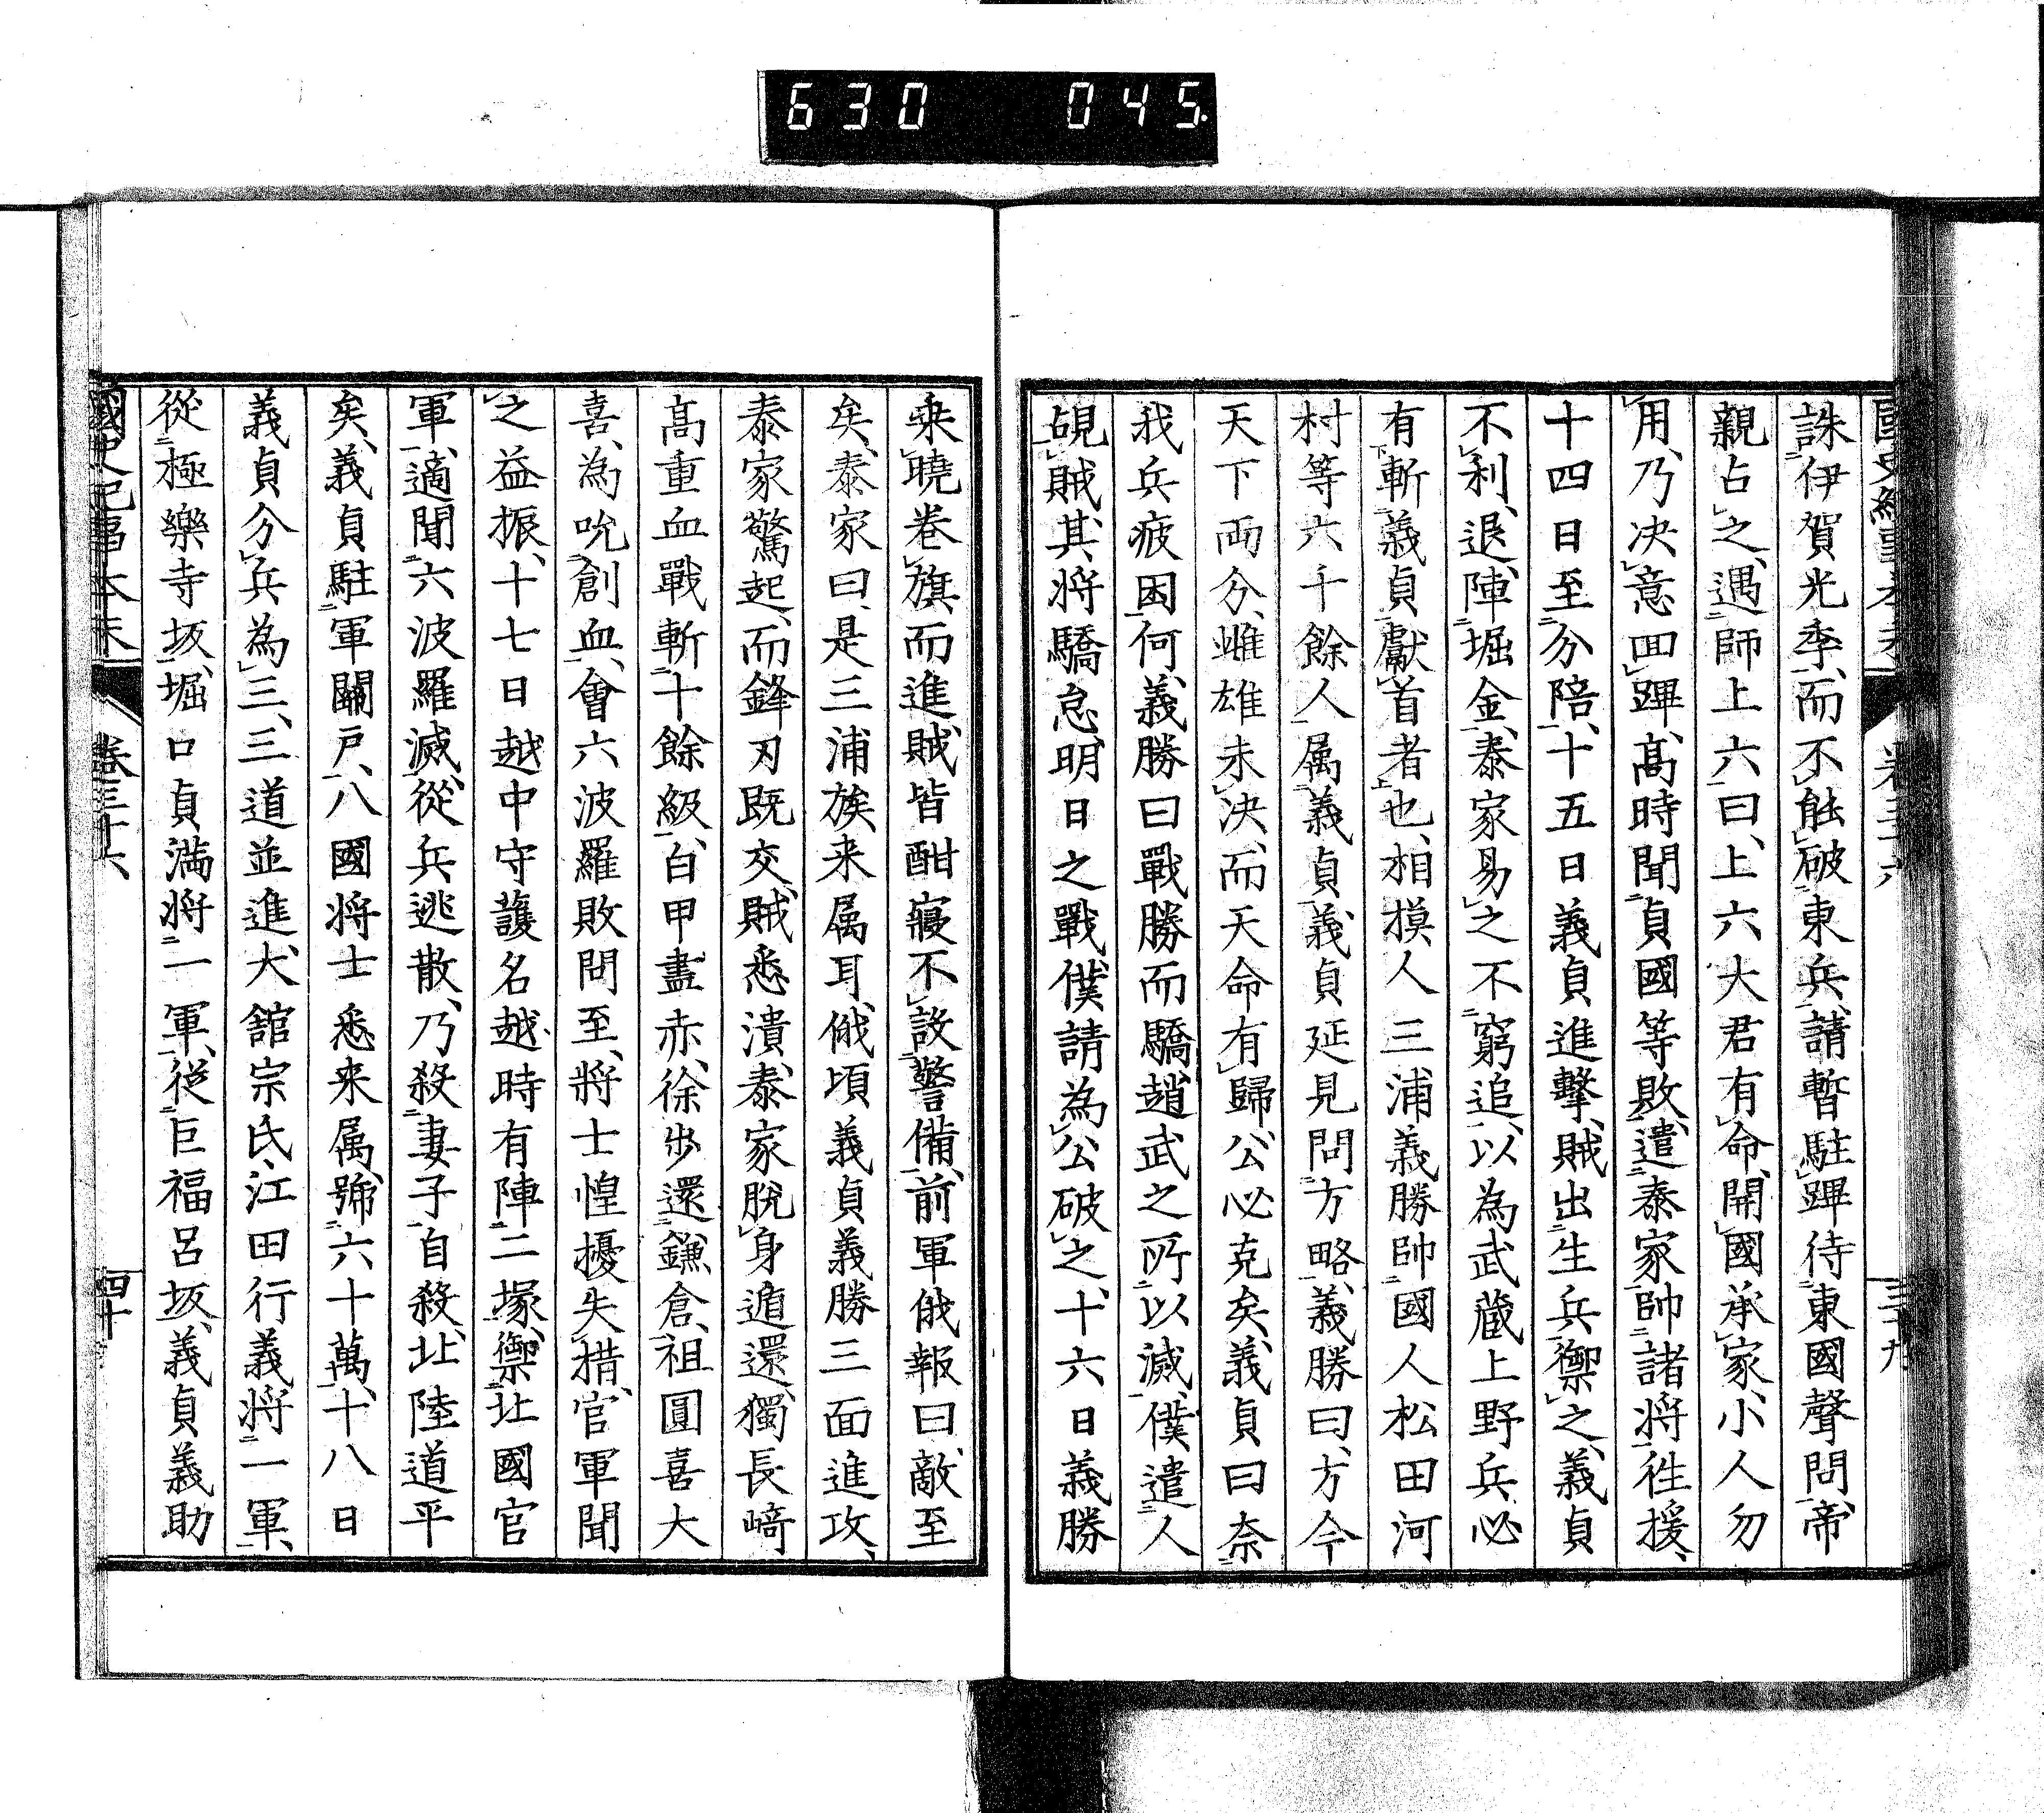 630 045
誅伊賀光季、而不能破東兵、請暫駐蹕待東國聲問、帝
親占之、遇師上六曰、上六大君有命、開國承家、小人勿
用、乃决意回蹕、高時聞貞國等敗、遣泰家帥諸將徃援、
十四日至分陪、十五日義貞進擊、賊出生兵禦之、義貞
不利、退陣堀金、泰家易之不窮追、以為武藏上野兵必
有斬義貞獻首者也、相摸人三浦義勝帥國人松田河
村等六千餘人属義貞、義貞延見問方略、義勝曰、方今
天下両分、雌雄未决、而天命有歸、公必克矣、義貞曰奈
我兵疲困何、義勝曰戰勝而驕、趙武之所以滅、僕遣人
覘賊、其将驕怠、明日之戰、僕請為公破之、十六日義勝
乘曉卷旗而進、賊皆酣寢不設警備、前軍俄報曰、敵至
矣、泰家曰、是三浦族来属耳、俄頃義貞義勝三面進攻、
泰家驚起、而鋒刃既交、賊悉潰、泰家脫身遁還、獨長﨑
高重血戰斬十餘級、白甲盡赤、徐歩還鎌倉、祖圓喜大
喜、為吮創血、會六波羅敗問至、將士惶擾失措、官軍聞
之益振、十七日越中守護名越時有陣二塚、禦北國官
軍、適聞六波羅滅、從兵逃散、乃殺妻子自殺、北陸道平
矣、義貞駐軍關戸、八國将士悉来属、號六十萬、十八日
義貞分兵為三、三道並進、大舘宗氏、江田行義将一軍、
從極樂寺坂、堀口貞満将一軍、從巨福呂坂、義貞義助
國史紀事本末　卷三十六、　四十